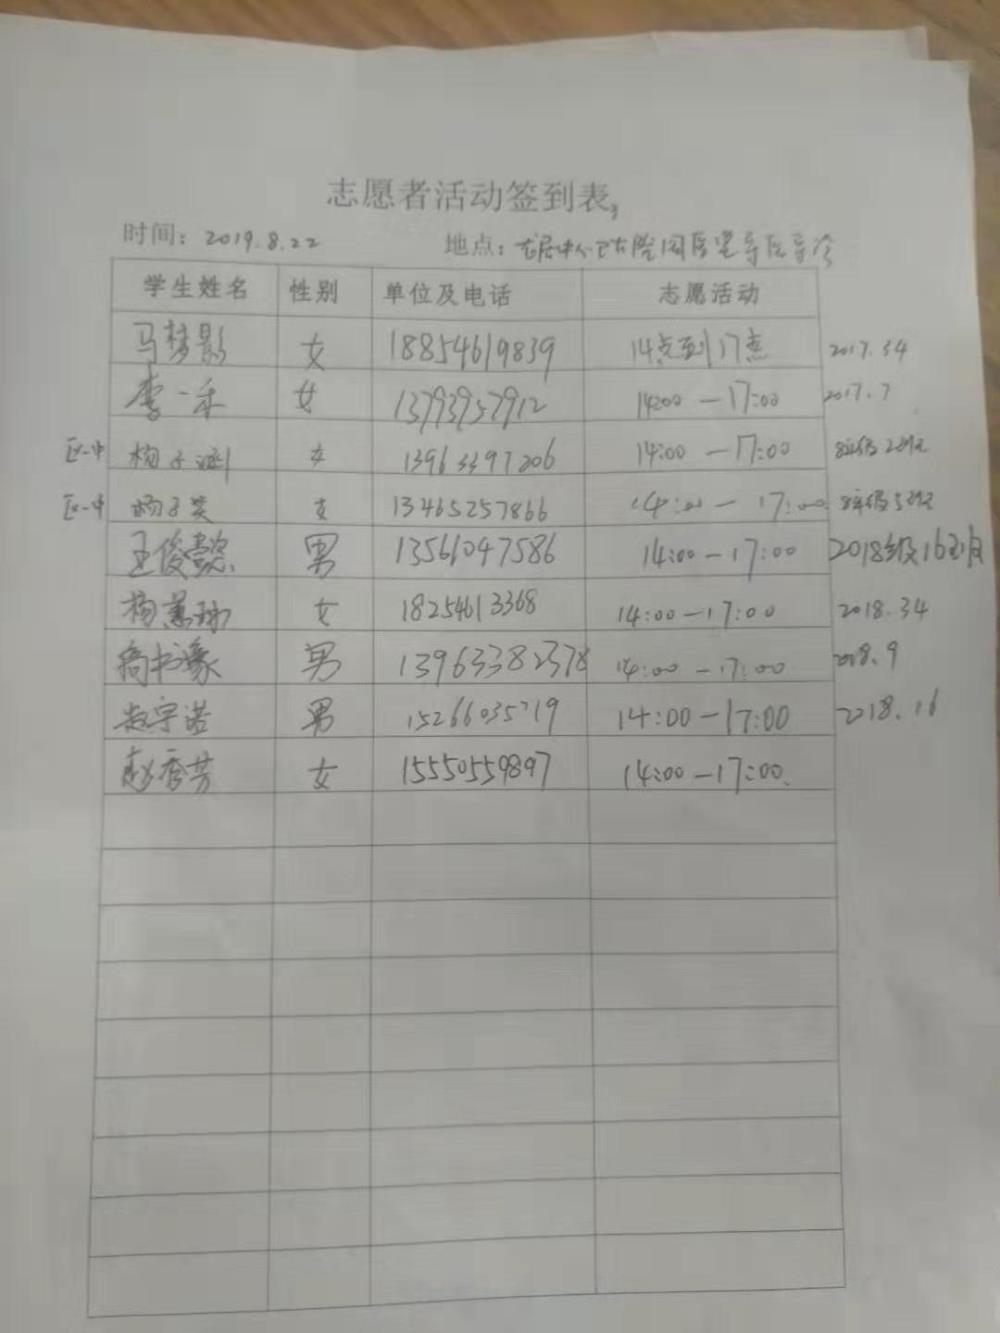 志愿者活动签到表,
时间: 2019.8.22 地点:
学生姓名 性别 单位及电话 志愿活动
马梦影 女 18854619839 14点到17点 2017.34
李一禾 女 13793957912 14:00—17:00 2017.7
区一中 杨子 女 13963397206 14:00—17:00 8年级
区一中 杨子英 女 13465257866 14:00—17:00 8年级
王俊懿 男 13561047586 14:00—17:00 2018级16班
杨蕙 女 18254613368 14:00—17:00 2018.34
商书豪 男 13963382378 14:00—17:00 2018.9
赵宇诺 男 15266035719 14:00—17:00 2018.16
赵秀芳 女 15550559897 14:00—17:00.